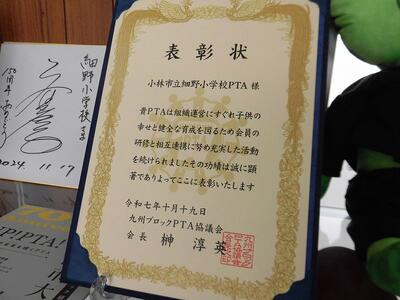 表彰状
小林市立細野小学校PTA 様
貴PTAは組織運営にすぐれ子供の
幸せと健全な育成を図るため会員の
研修と相互連携に努め充実した活動
を続けられましたその功績は誠に顕
著でありよってここに表彰いたします
令和七年十月十九日
九州ブロックPTA協議会
会長 榊 淳英
細野小学校さま
150周年ありがとう
2024.11.17
PTA!